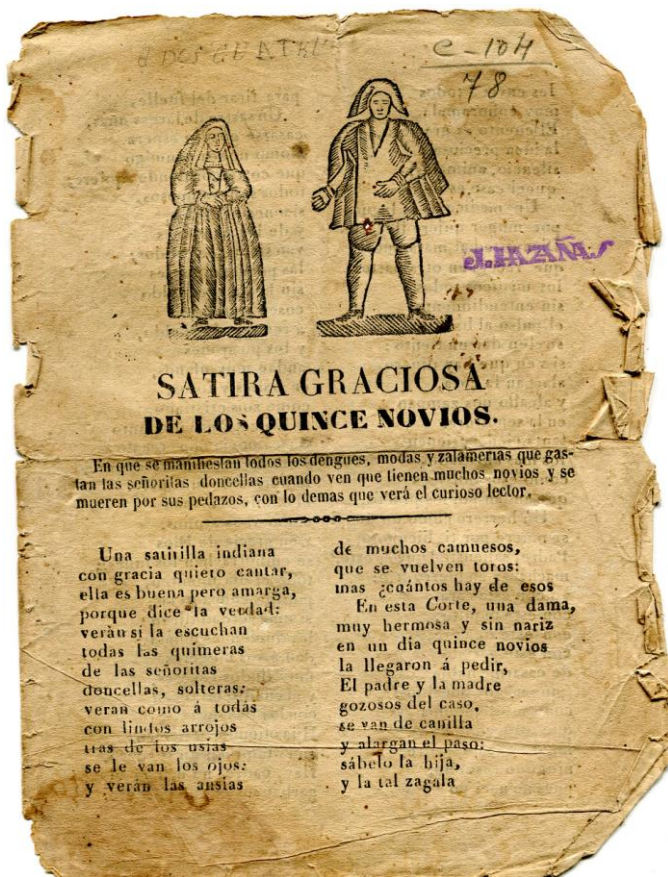 C-104
78
J. HAZAÑAS
SATIRA GRACIOSA
DE LOS QUINCE NOVIOS.
En que se manifiestan todos los dengues, modas y zalamerias que gas-
tan las señoritas doncellas cuando ven que tienen muchos novios y se
mueren por sus pedazos, con lo demas que verá el curioso lector.
Una satirilla indiana
con gracia quiero cantar,
ella es buena pero amarga,
porque dice la verdad:
verán si la escuchan
todas las quimeras
de las señoritas
doncellas, solteras:
veran como á todas
con lindos arrojos
tras de los usias
se le van los ojos:
y verán las ansias
de muchos camuesos,
que se vuelven toros:
mas ¿cuántos hay de esos
En esta Corte, una dama,
muy hermosa y sin nariz
en un dia quince novios
la llegaron á pedir,
El padre y la madre
gozosos del caso,
se van de canilla
y alargan el paso:
sábelo la hija,
y la tal zagala